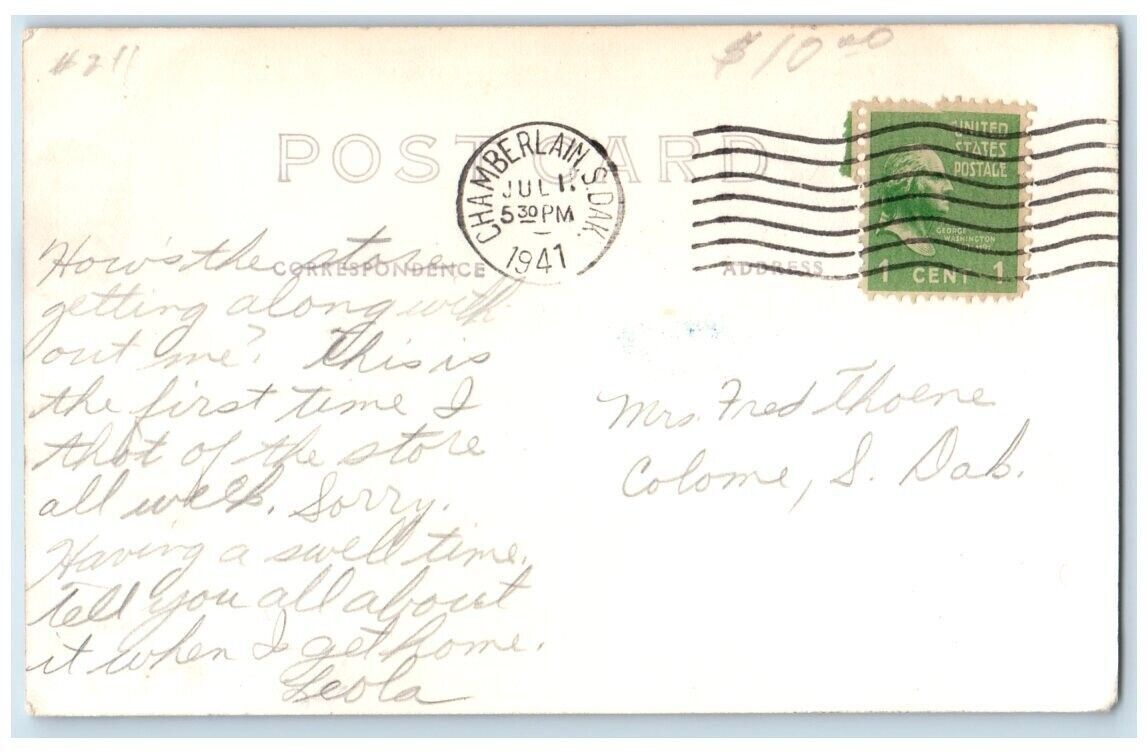 #211
$10.00
POST CARD
CHAMBERLAIN, S.DAK.
JUL 1.
5 30 PM
1941
UNITED
STATES
POSTAGE
GEORGE
WASHINGTON
1 CENT 1
CORRESPONDENCE
ADDRESS
How's the store
getting along with
out me? This is
the first time I
thot of the store
all week. Sorry.
Having a swell time.
Tell you all about
it when I get home.
Leola
Mrs. Fred Thoene
Colome, S. Dak.